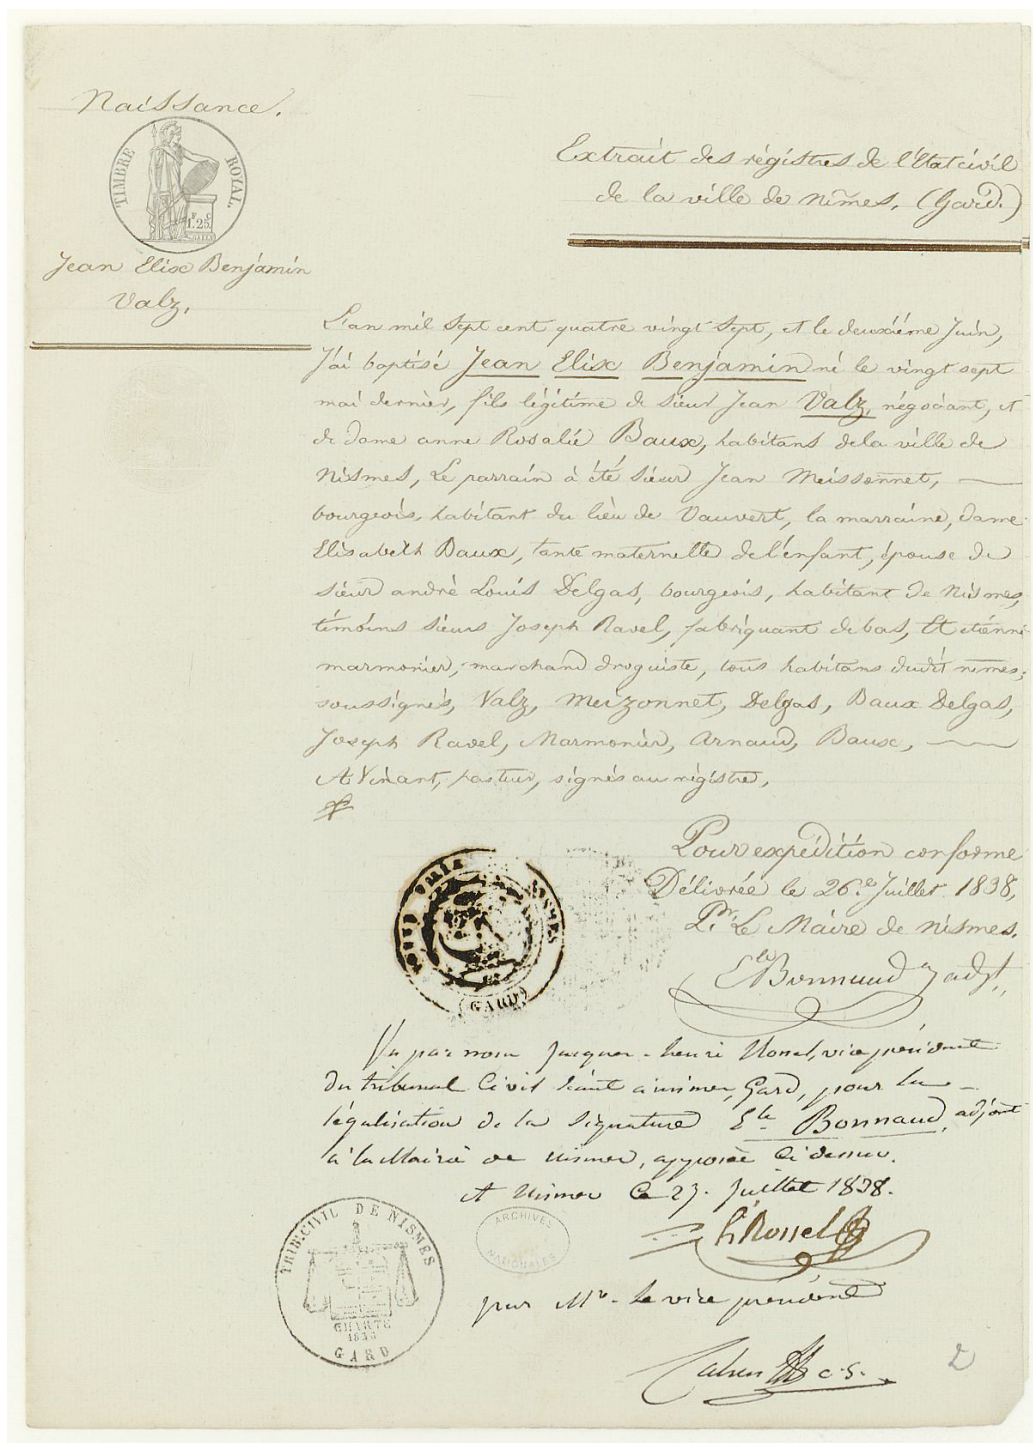 Naissance.
TIMBRE ROYAL.
F. C.
1.25
Jean Elix Benjamin
Valz,
Extrait des régistres de l'Etat civil
de la ville de Nimes, (Gard.)
L'an mil sept cent quatre vingt sept, et le deuxième Juin,
J'ai baptisé Jean Elix Benjamin né le vingt sept
mai dernier, fils légitime de sieur Jean Valz, négociant, et
de dame anne Rosalie Baux, habitans dela ville de
Nismes, Le parrain à été sieur Jean Meissonnet,
bourgeois, habitant du lieu de Vauvert, la marraine, dame
Elisabeth Baux, tante maternelle de l'enfant, épouse de
sieur andré Louis Delgas, bourgeois, habitant de Nismes,
témoins sieurs Joseph Ravel, fabriquant de bas, Et etienne
marmonier, marchand droguiste, tous habitans dudit nimes;
soussignés, Valz, Meizonnet, Delgas, Baux Delgas,
Joseph Ravel, Marmonier, Arnaud, Baux,
A Vinant, pasteur, signés au régistre,
Pour expédition conforme
Délivrée le 26.e Juillet 1838,
Pr. Le Maire de Nismes.
Ele Bonnaud adjt,
NISMES
(GARD)
Vu par nous Jacques-henri Rossel, vice président
du tribunal Civil séant à nimes, Gard, pour la
légalisation de la signature Ele Bonnaud, adjoint
à la Mairie de nismes, apposée Ci dessus.
A Nismes Ce 27. Juillet 1838.
h Rossel
TRIB. CIVIL DE NISMES
CHARTE
1830
GARD
ARCHIVES
NATIONALES
par Mr. le vice président
c.g.
2